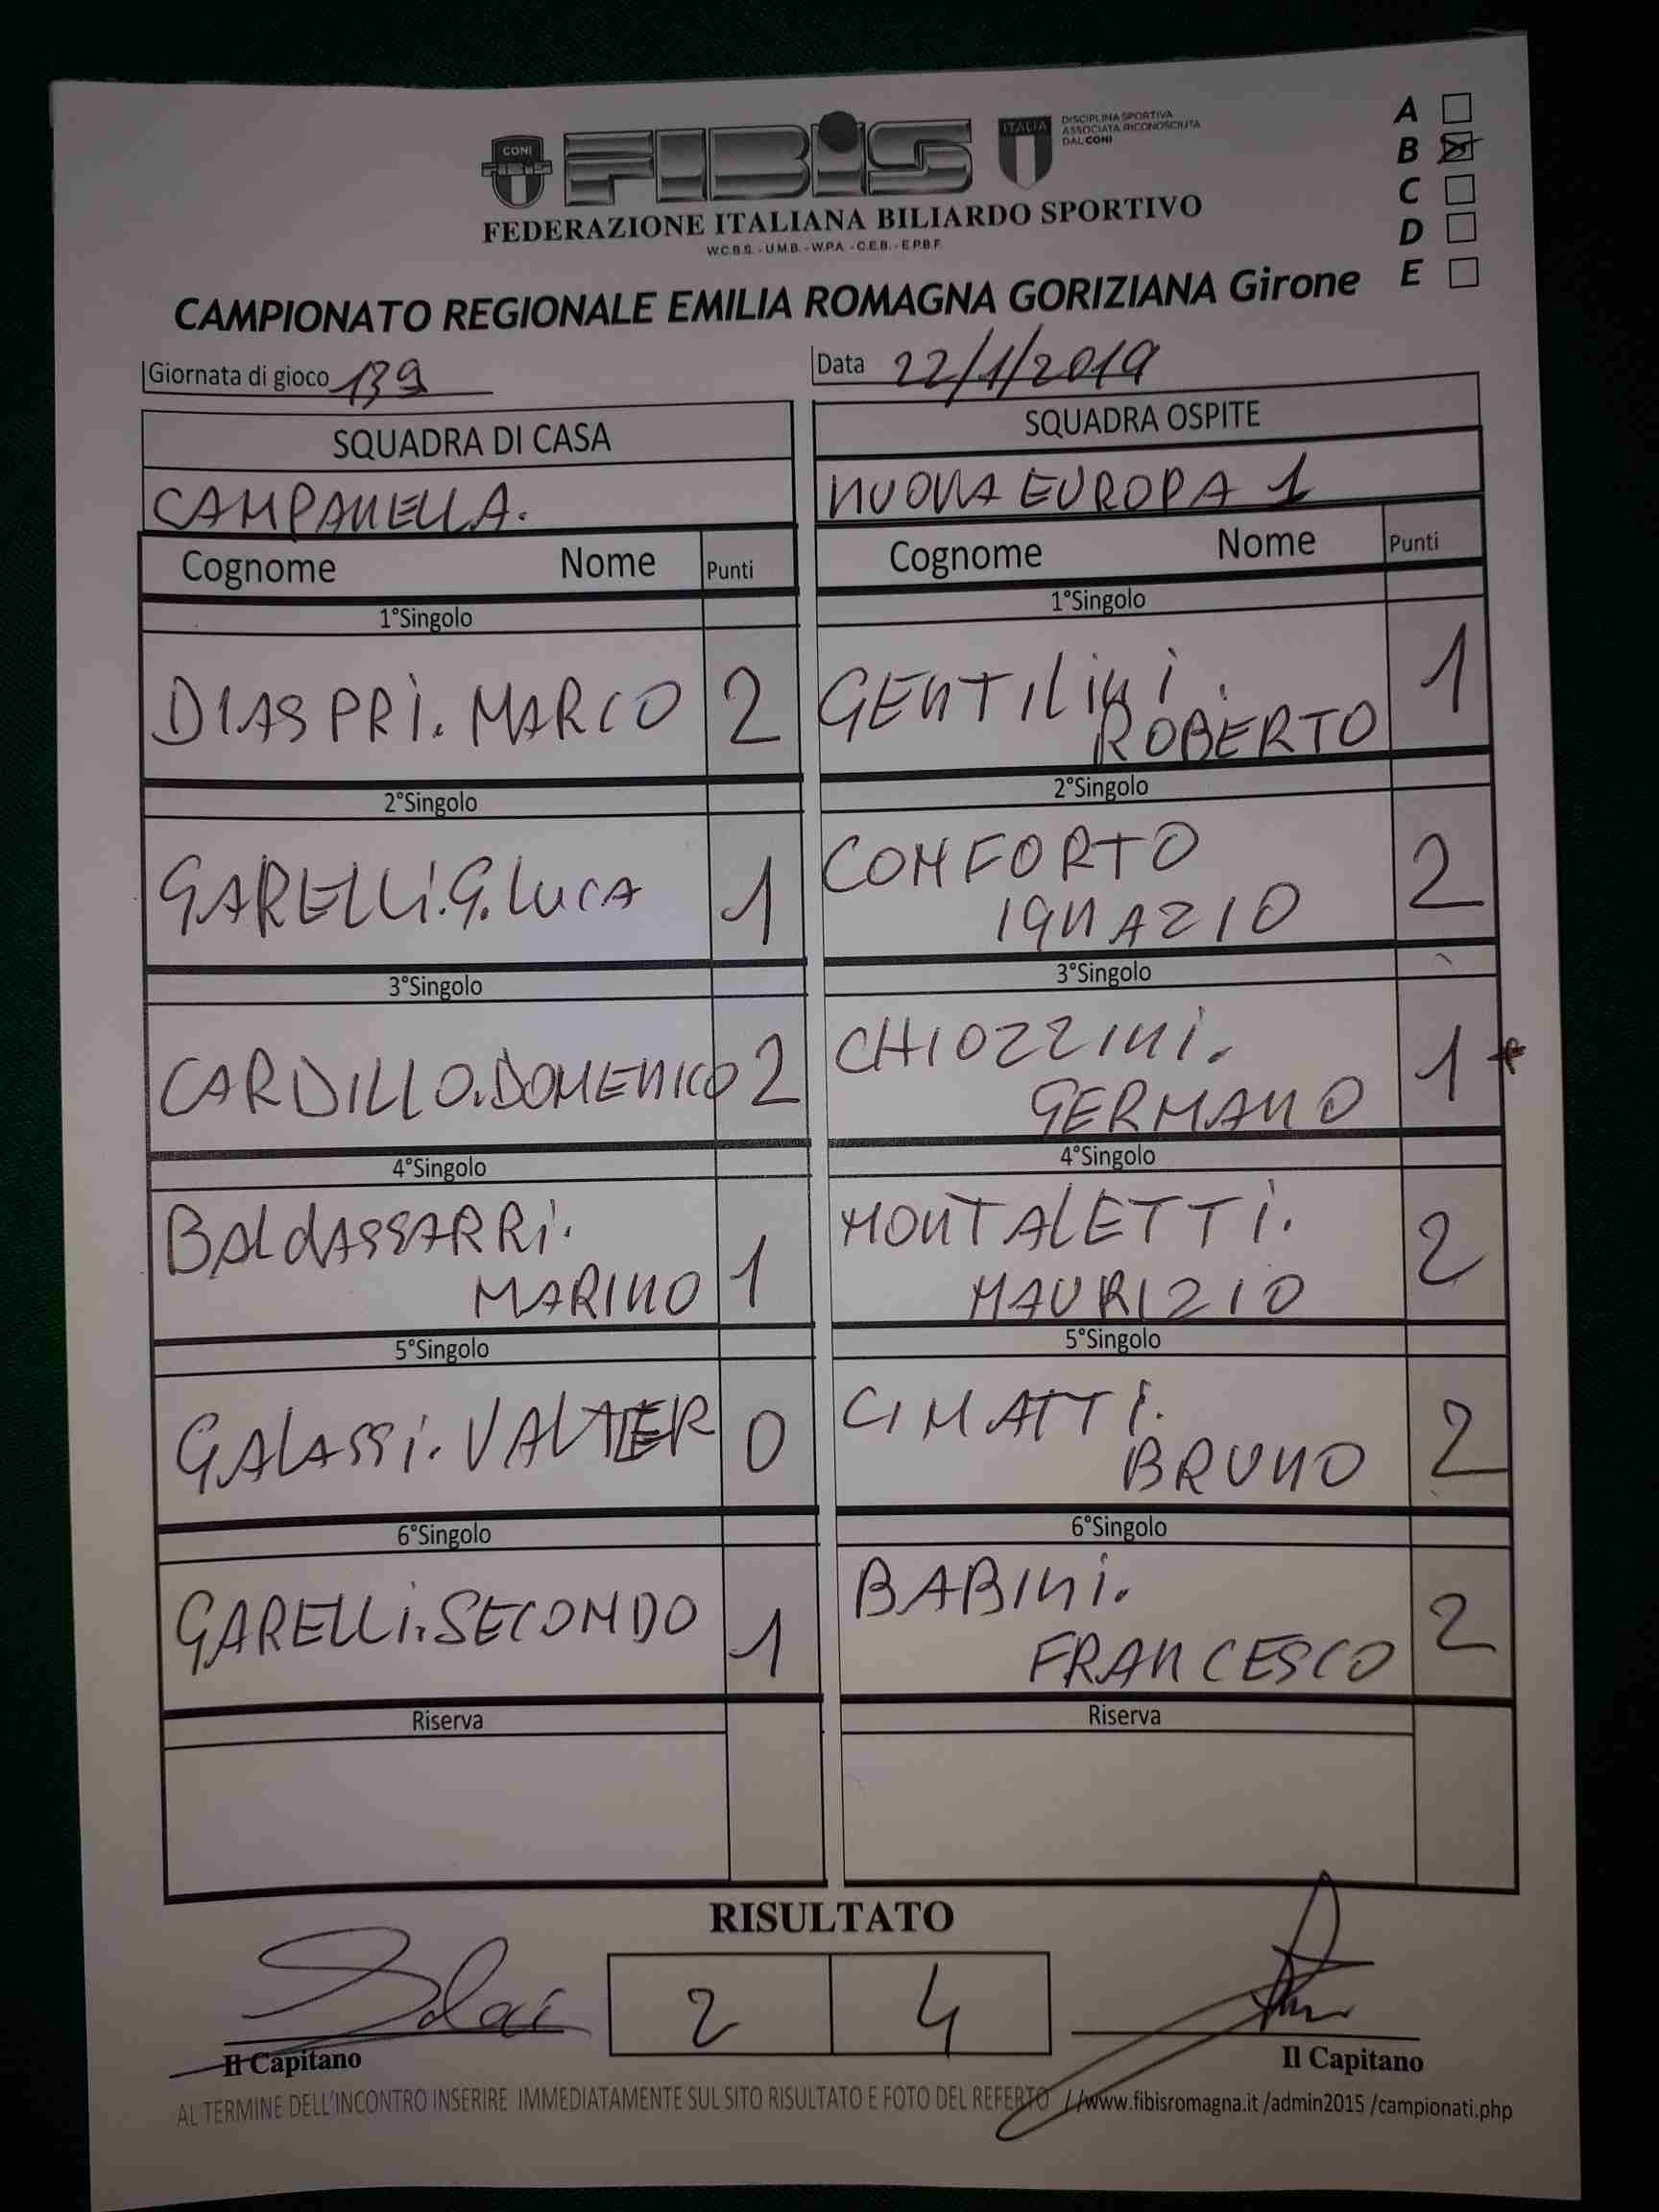 A
B
C
D
E
CONI
FIBIS
FIBIS
ITALIA
DISCIPLINA SPORTIVA
ASSOCIATA RICONOSCIUTA
DAL CONI
FEDERAZIONE ITALIANA BILIARDO SPORTIVO
W.C.B.S. - U.M.B. - W.P.A. - C.E.B. - E.P.B.F.
CAMPIONATO REGIONALE EMILIA ROMAGNA GORIZIANA Girone
Giornata di gioco 13ª Data 22/1/2019
SQUADRA DI CASA SQUADRA OSPITE
CAMPANELLA. NUOVA EUROPA 1
Cognome Nome Punti Cognome Nome Punti
1°Singolo 1°Singolo
DIASPRI. MARCO 2 GENTILINI.
ROBERTO 1
2°Singolo 2°Singolo
GARELLI. G. LUCA 1 CONFORTO
IGNAZIO 2
3°Singolo 3°Singolo
CARDILLO. DOMENICO 2 CHIOZZINI.
GERMANO 1
4°Singolo 4°Singolo
BALDASSARRI.
MARINO 1
MONTALETTI.
MAURIZIO 2
5°Singolo 5°Singolo
GALASSI. VALTER 0 CIMATTI.
BRUNO 2
6°Singolo 6°Singolo
GARELLI. SECONDO 1 BABINI.
FRANCESCO 2
Riserva Riserva
RISULTATO
2 4
Il Capitano Il Capitano
AL TERMINE DELL'INCONTRO INSERIRE IMMEDIATAMENTE SUL SITO RISULTATO E FOTO DEL REFERTO //www.fibisromagna.it /admin2015 /campionati.php